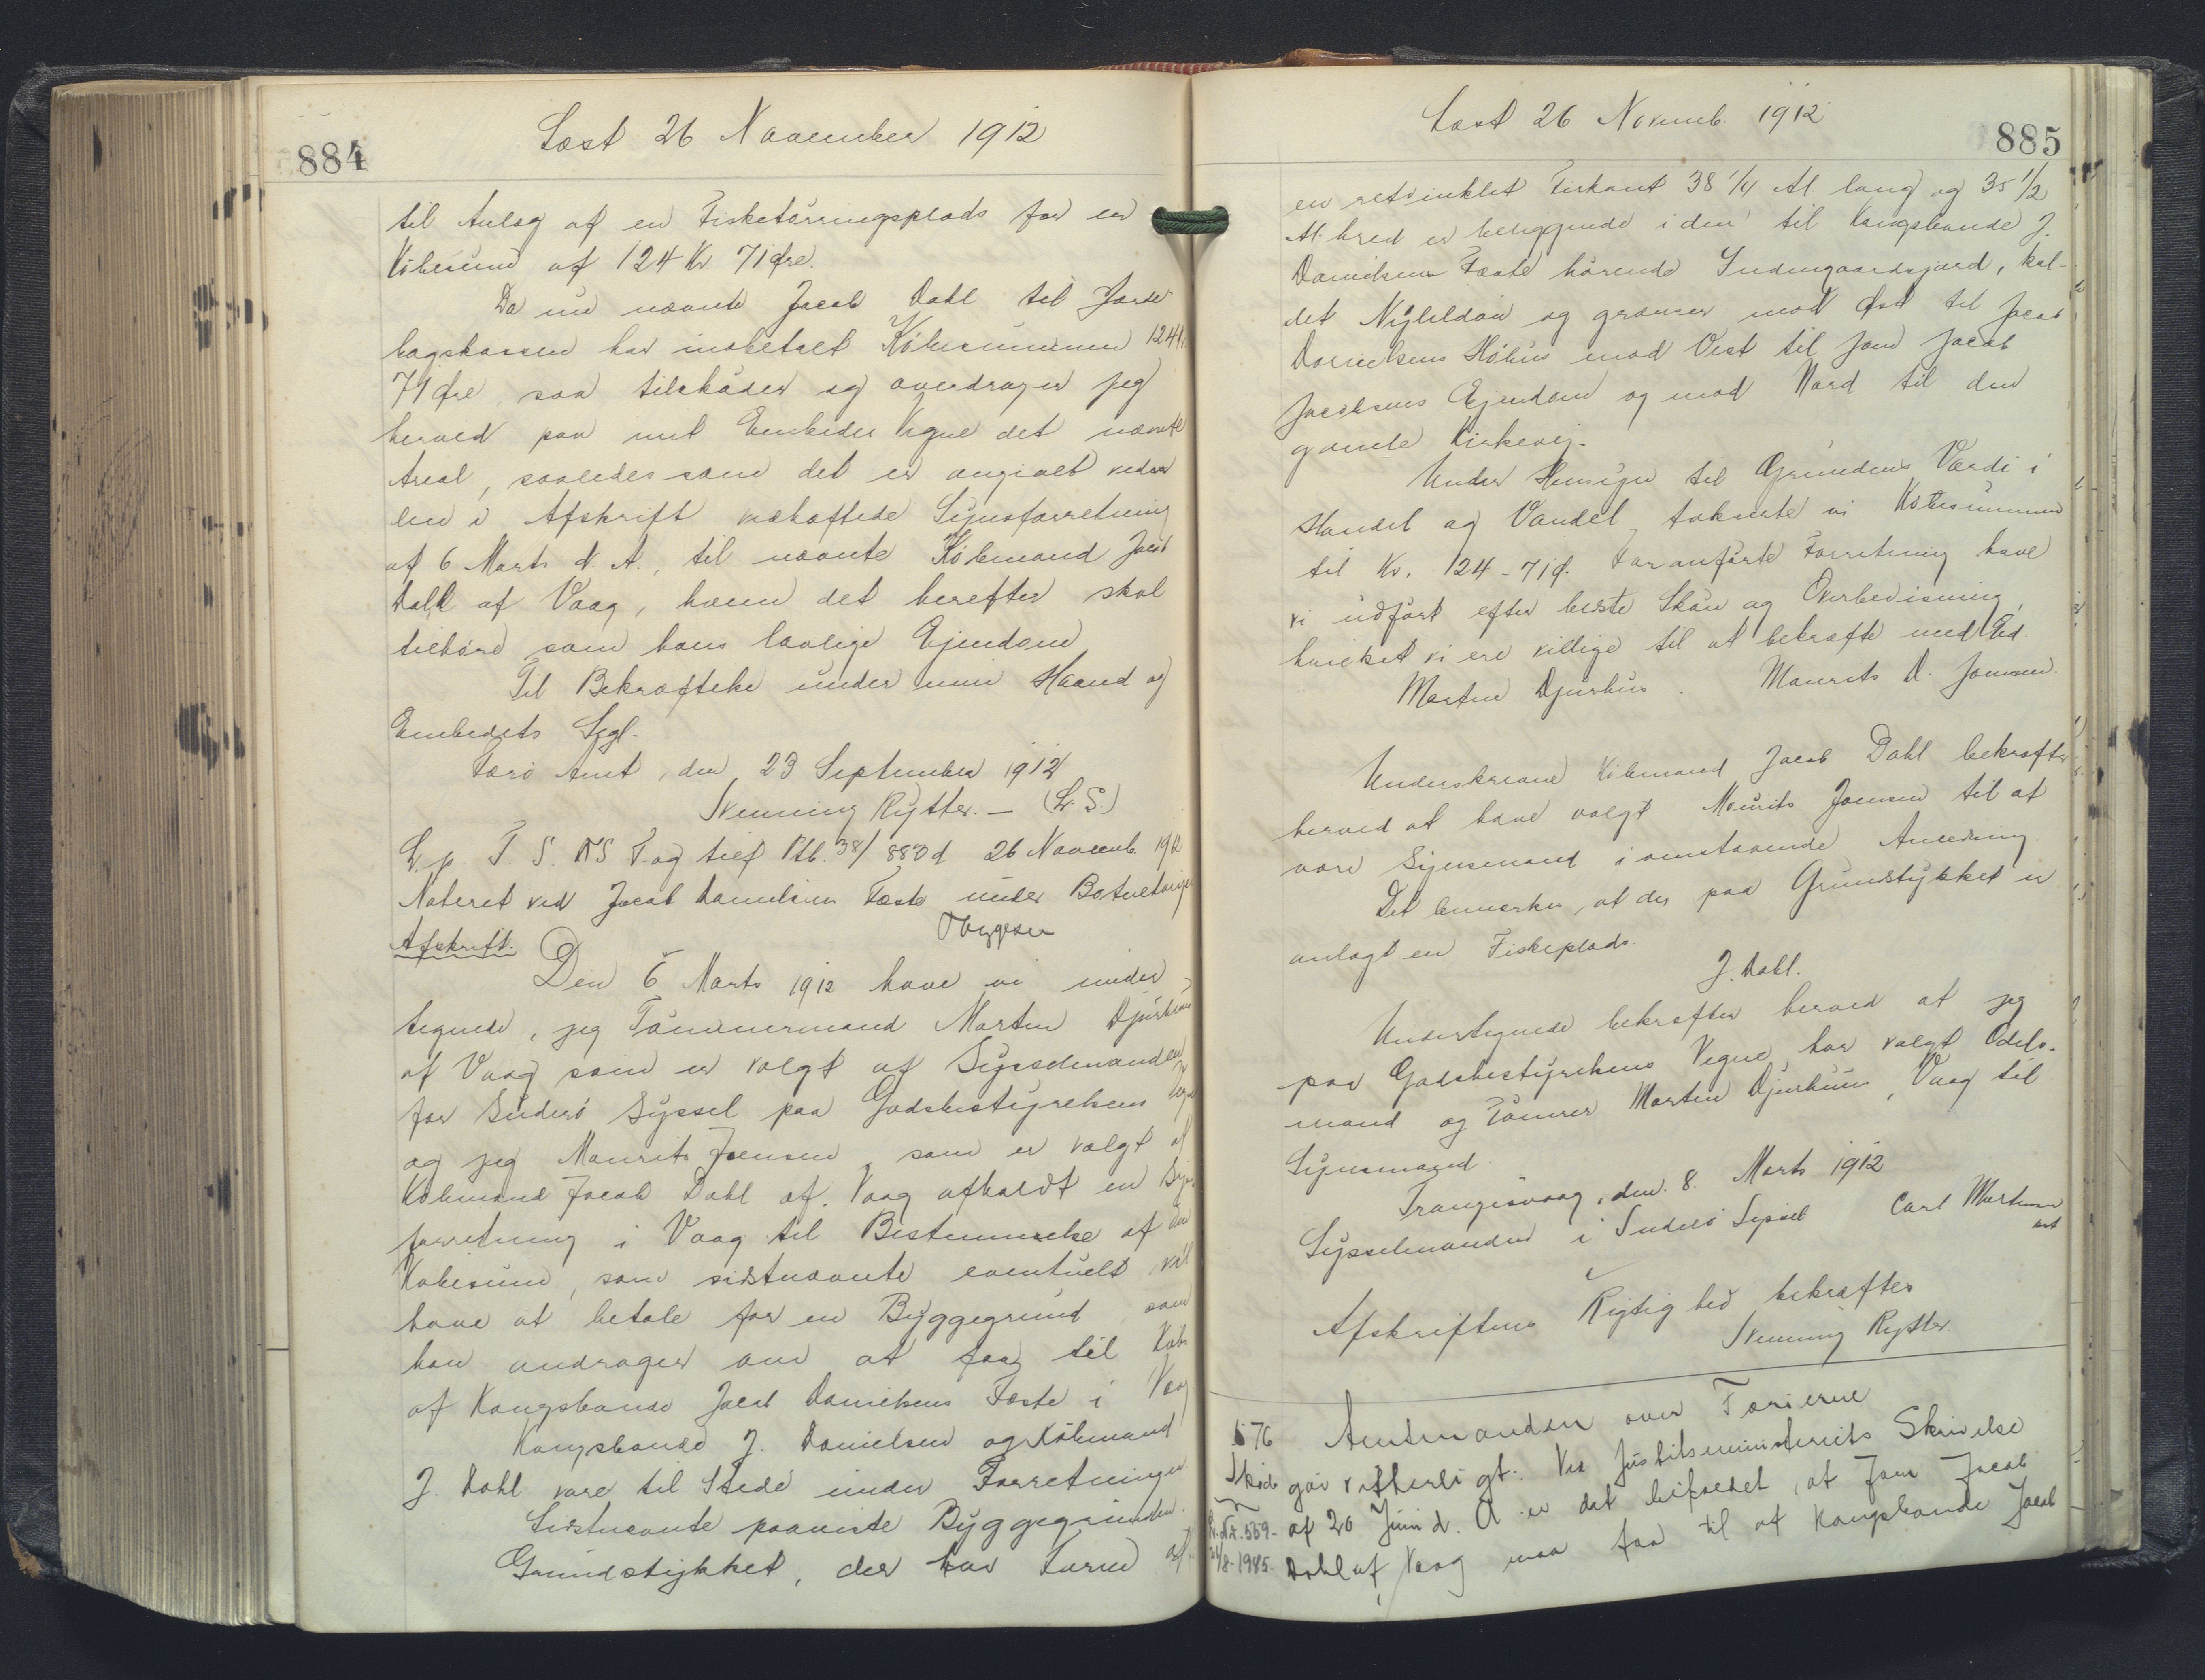 884
Læst 26 November 1912
til Anlæg af en Fisketörringsplads for en
Köbesum af 124 Kr. 71 Øre.
Da nu nævnte Jacob Dahl til Jorde-
bogskassen har indbetalt Köbesummen 124 Kr
71 Øre, saa tilsköder og overdrager jeg
herved paa mit Embedes Vegne det nævnte
Areal, saaledes som det er angivet i den
i Afskrift vedhæftede Synsforretning
af 6 Marts d. A., til nævnte Köbmand Jacob
Dahl af Vaag, hvem det herefter skal
tilhöre som hans lovlige Ejendom
Til Bekræftelse under min Haand og
Embedets Segl.
Færö Amt, den 23 September 1912
Svenning Rytter. — (L. S.)
L. p. T. S. NS T. og tilf Ptb. 38/883 d 26 Novemb. 1912
Noteret ved Jacob Danielsens Fæste under
Afskrift.
Den 6 Marts 1912 have vi under
tegnede, jeg Tömmermand Morten Djurhuus
af Vaag som er valgt af Sysselmanden
for Suderö Syssel paa Godsbestyrelsens Vegne
og jeg Maurits Joensen, som er valgt af
Köbmand Jacob Dahl af Vaag afholdt en Syns
forretning i Vaag til Bestemmelse af den
Köbesum, som sidstnævnte eventuelt vil
have at betale for en Byggegrund, som
han andrager om at faa til Köb
af Kongsbonde Jacob Danielsens Fæste i Vaag
Kongsbonde J. Danielsen og Köbmand
J. Dahl vare til Stede under Forretningen
Sidstnævnte paaviste Byggegrunden.
Grundstykket, der har Form af
885
Læst 26 Novemb. 1912
en retvinklet Firkant 38 1/4 Al. lang og 35 1/2
Al. bred er beliggende i den til Kongsbonde J.
Danielsens Fæste hörende Indengaardsjord, kal-
det og grænser mod Øst til Jacob
Danielsens Höhus mod Vest til Joen Jacob
Jacobsens Ejendom og mod Nord til den
gamle Kirkevej.
Under Hensyn til Grundens Værdi i
Handel og Vandel, takserte vi Köbesummen
til Kr. 124 - 71 Ø. Foranförte Forretning have
vi udfört efter bedste Skön og Overbevisning,
hvilket vi ere villige til at bekræfte med Ed.
Morten Djurhus. Maurits D. Joensen.
Underskrevne Köbmand Jacob Dahl bekræfter
herved at have valgt Mourits Joensen til at
være Synsmand i omstaaende Anledning
Det bemærkes, at der paa Grundstykket er
anlagt en Fiskeplads.
J. Dahl.
Undertegnede bekræfter herved at jeg
paa Godsbestyrelsens Vegne har valgt Odels-
mand og Tömrer Morten Djurhuus, Vaag til
Synsmand.
Trangisvaag, den 8. Marts 1912
Sysselmanden i Suderö Syssel Carl Mortensen
kst
Afskriftens Rigtighed bekræftes
Svenning Rytter.
576 Amtmanden over Færöerne
Sköde gör vitterligt: Ved Justitsministeriets Skrivelse
af 20 Juni d. A. er det bifaldet, at Joen Jacob
Dahl af Vaag maa faa til af Kongsbonde Jacob
L. Nr. 559-
21/8-1945.